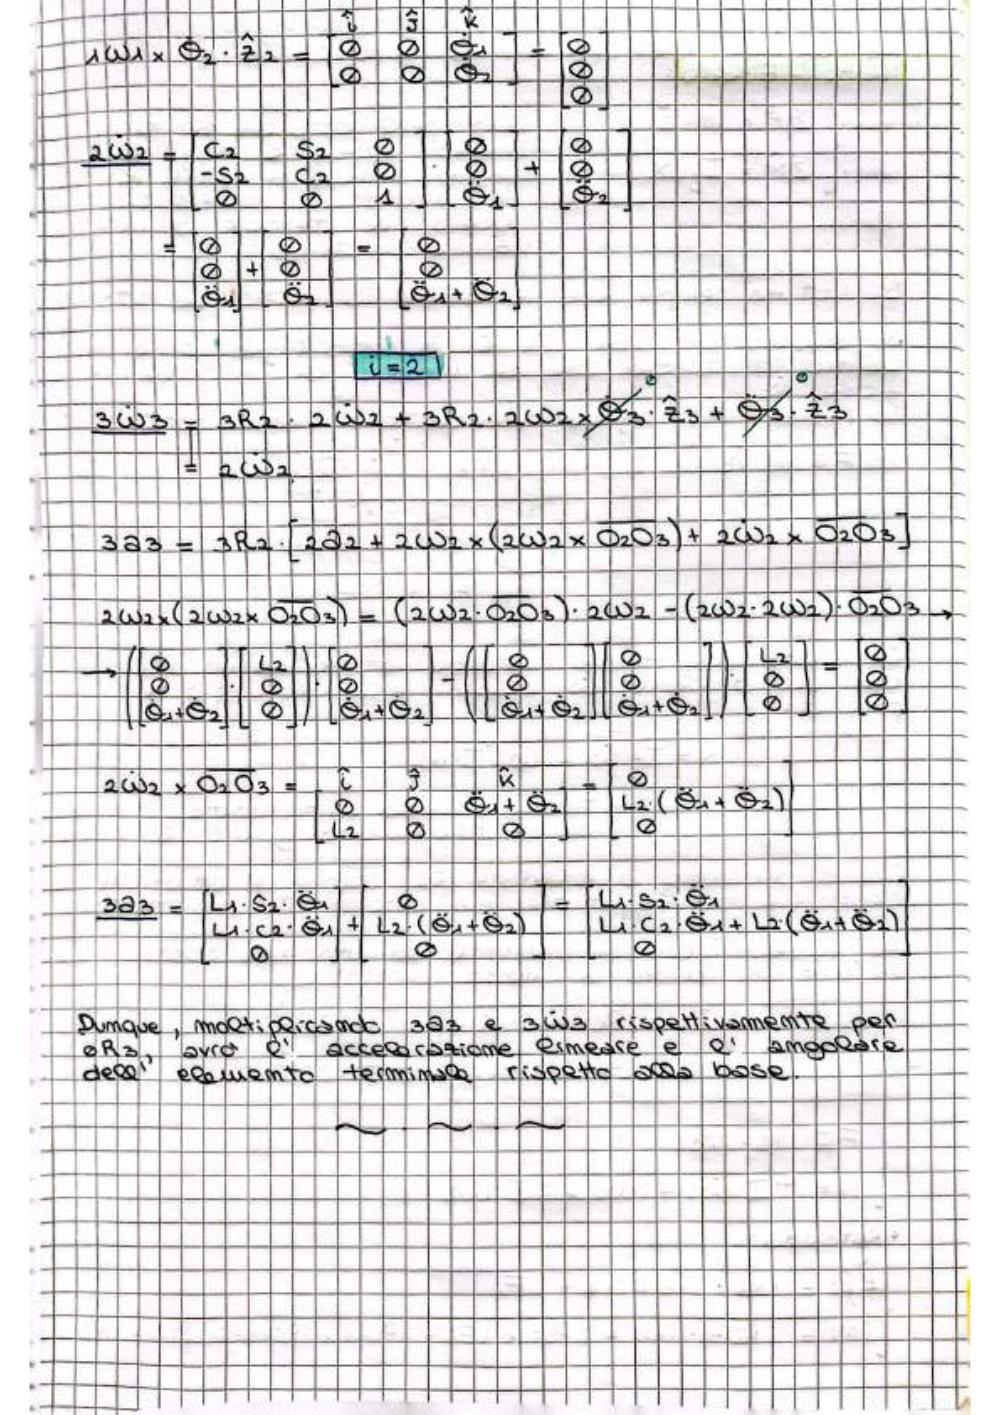 î ĵ k̂
1ω1 × Θ̇2 · ẑ2 = [0 0 Θ̇1; 0 0 Θ̇2] = [0; 0; 0]
2ω̇2 = [C2 S2 0; -S2 C2 0; 0 0 1] · [0; 0; Θ̈1] + [0; 0; Θ̈2]
= [0; 0; Θ̈1] + [0; 0; Θ̈2] = [0; 0; Θ̈1 + Θ̈2]
i = 2
3ω̇3 = 3R2 · 2ω̇2 + 3R2 · 2ω2 × Θ̇3 · ẑ3 + Θ̈3 · ẑ3
= 2ω̇2
3a3 = 3R2 · [2a2 + 2ω2 × (2ω2 × O2O3) + 2ω̇2 × O2O3]
2ω2 × (2ω2 × O2O3) = (2ω2 · O2O3) · 2ω2 - (2ω2 · 2ω2) · O2O3 →
→ ([0; 0; Θ̇1+Θ̇2] · [L2; 0; 0]) · [0; 0; Θ̇1+Θ̇2] - ([0; 0; Θ̇1+Θ̇2] [0; 0; Θ̇1+Θ̇2]) · [L2; 0; 0] = [0; 0; 0]
2ω̇2 × O2O3 = [î ĵ k̂; 0 0 Θ̈1+Θ̈2; L2 0 0] = [0; L2·(Θ̈1+Θ̈2); 0]
3a3 = [L1·S2·Θ̈1; L1·C2·Θ̈1; 0] + [0; L2·(Θ̈1+Θ̈2); 0] = [L1·S2·Θ̈1; L1·C2·Θ̈1 + L2·(Θ̈1+Θ̈2); 0]
Dunque, moltiplicando 3a3 e 3ω̇3 rispettivamente per
0R3, avrò l' accelerazione lineare e l' angolare
dell' elemento terminale rispetto alla base.